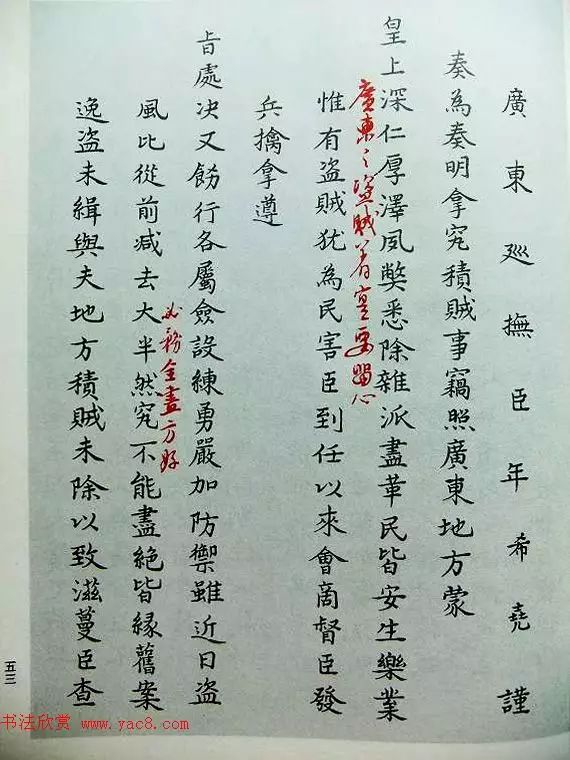 廣東廵撫臣年希堯謹
奏為奏明拿究積賊事竊照廣東地方蒙
皇上深仁厚澤夙獘悉除雜派盡革民皆安生樂業
廣東之盜賊着實要留心
惟有盗賊犹為民害臣到任以來會啇督臣發
兵擒拿遵
旨處决又飭行各屬僉設練勇嚴加防禦雖近日盗
必務全盡方好
風比從前减去大半然究不能盡絕皆縁舊案
逸盗未緝與夫地方積賊未除以致滋蔓臣查
五三
书法欣赏 www.yac8.com